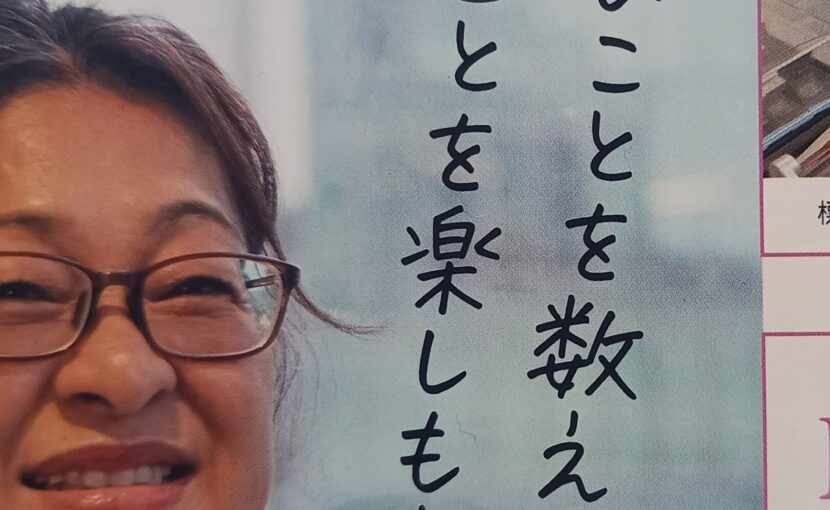 ことを数え
とを楽しも